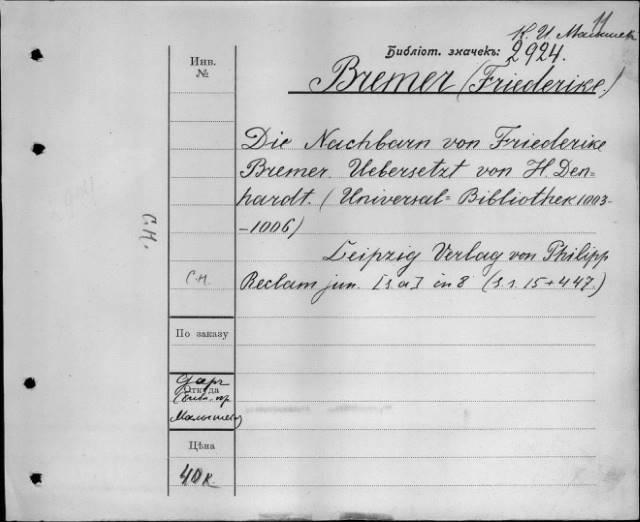 К. И. Малышев
Библіот. значекъ: 2924.
Bremer (Friederike)
Инв.
№
Die Nachbarn von Friederike
Bremer. Uebersetzt von H. Den=
hardt. (Universal=Bibliothek 1003-
-1006)
Leipzig Verlag von Philipp
Reclam jun. [s a] in 8 (S. 1. 15+447.)
С.Н.
С.Н.
По заказу
Даръ
Откуда
Малышева
Цѣна
40 к.